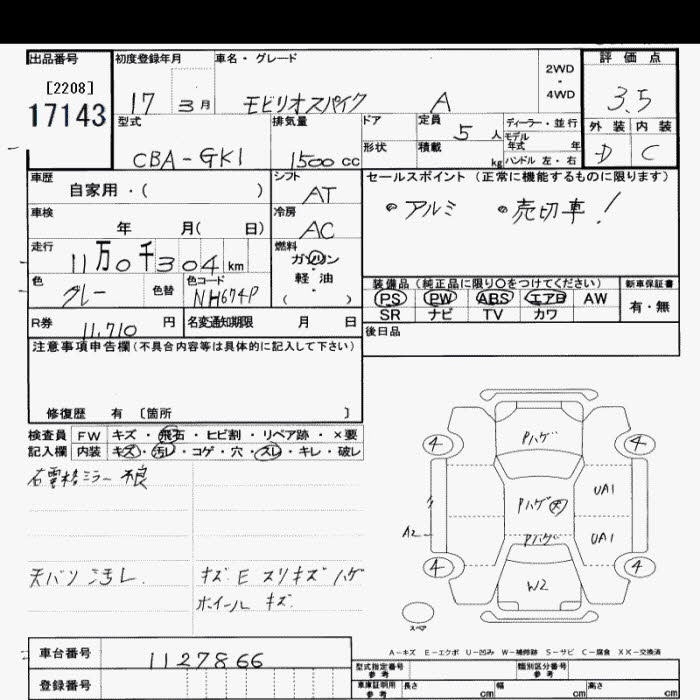 出品番号 初度登録年月 車名・グレード 評価点
[2208]
17143
17 3月 モビリオスパイク A
2WD
・
4WD
3.5
外装 内装
D C
型式 排気量 ドア 定員 5人 ディーラー・並行
モデル
年式 年
CBA-GK1 1500cc 形状 積載 kg ハンドル 左・右
車歴 シフト セールスポイント(正常に機能するものに限ります)
自家用・( ) AT
・アルミ ・売切車!
車検 冷房
年 月( 日) AC
走行 燃料
11万0千304km ガソリン
・
軽油
( )
色 色替 色コード
グレー NH674P
装備品(純正品に限り○をつけてください) 新車保証書
PS PW ABS エアB AW 有・無
SR ナビ TV カワ
R券 11,710円 名変通知期限 月 日
後日品
注意事項申告欄(不具合内容等は具体的に記入して下さい)
修復歴 有 〔箇所 〕
検査員 FW キズ・飛石・ヒビ割・リペア跡・×要
記入欄 内装 キズ・汚レ・コゲ・穴・スレ・キレ・破レ
ミラー 不良
天バリ 汚レ
キズ E スリキズ ハゲ
ホイール キズ
4 Pハゲ 4
Pハゲ UA1
A2 Pハゲ UA1
4 W2 4
スペア
A-キズ E-エクボ U-凹み W-補修跡 S-サビ C-腐食 XX-交換済
車台番号 1127866
登録番号
型式指定番号
参考
類別区分番号
参考
車庫証明用
参考
長さ cm 幅 cm 高さ cm